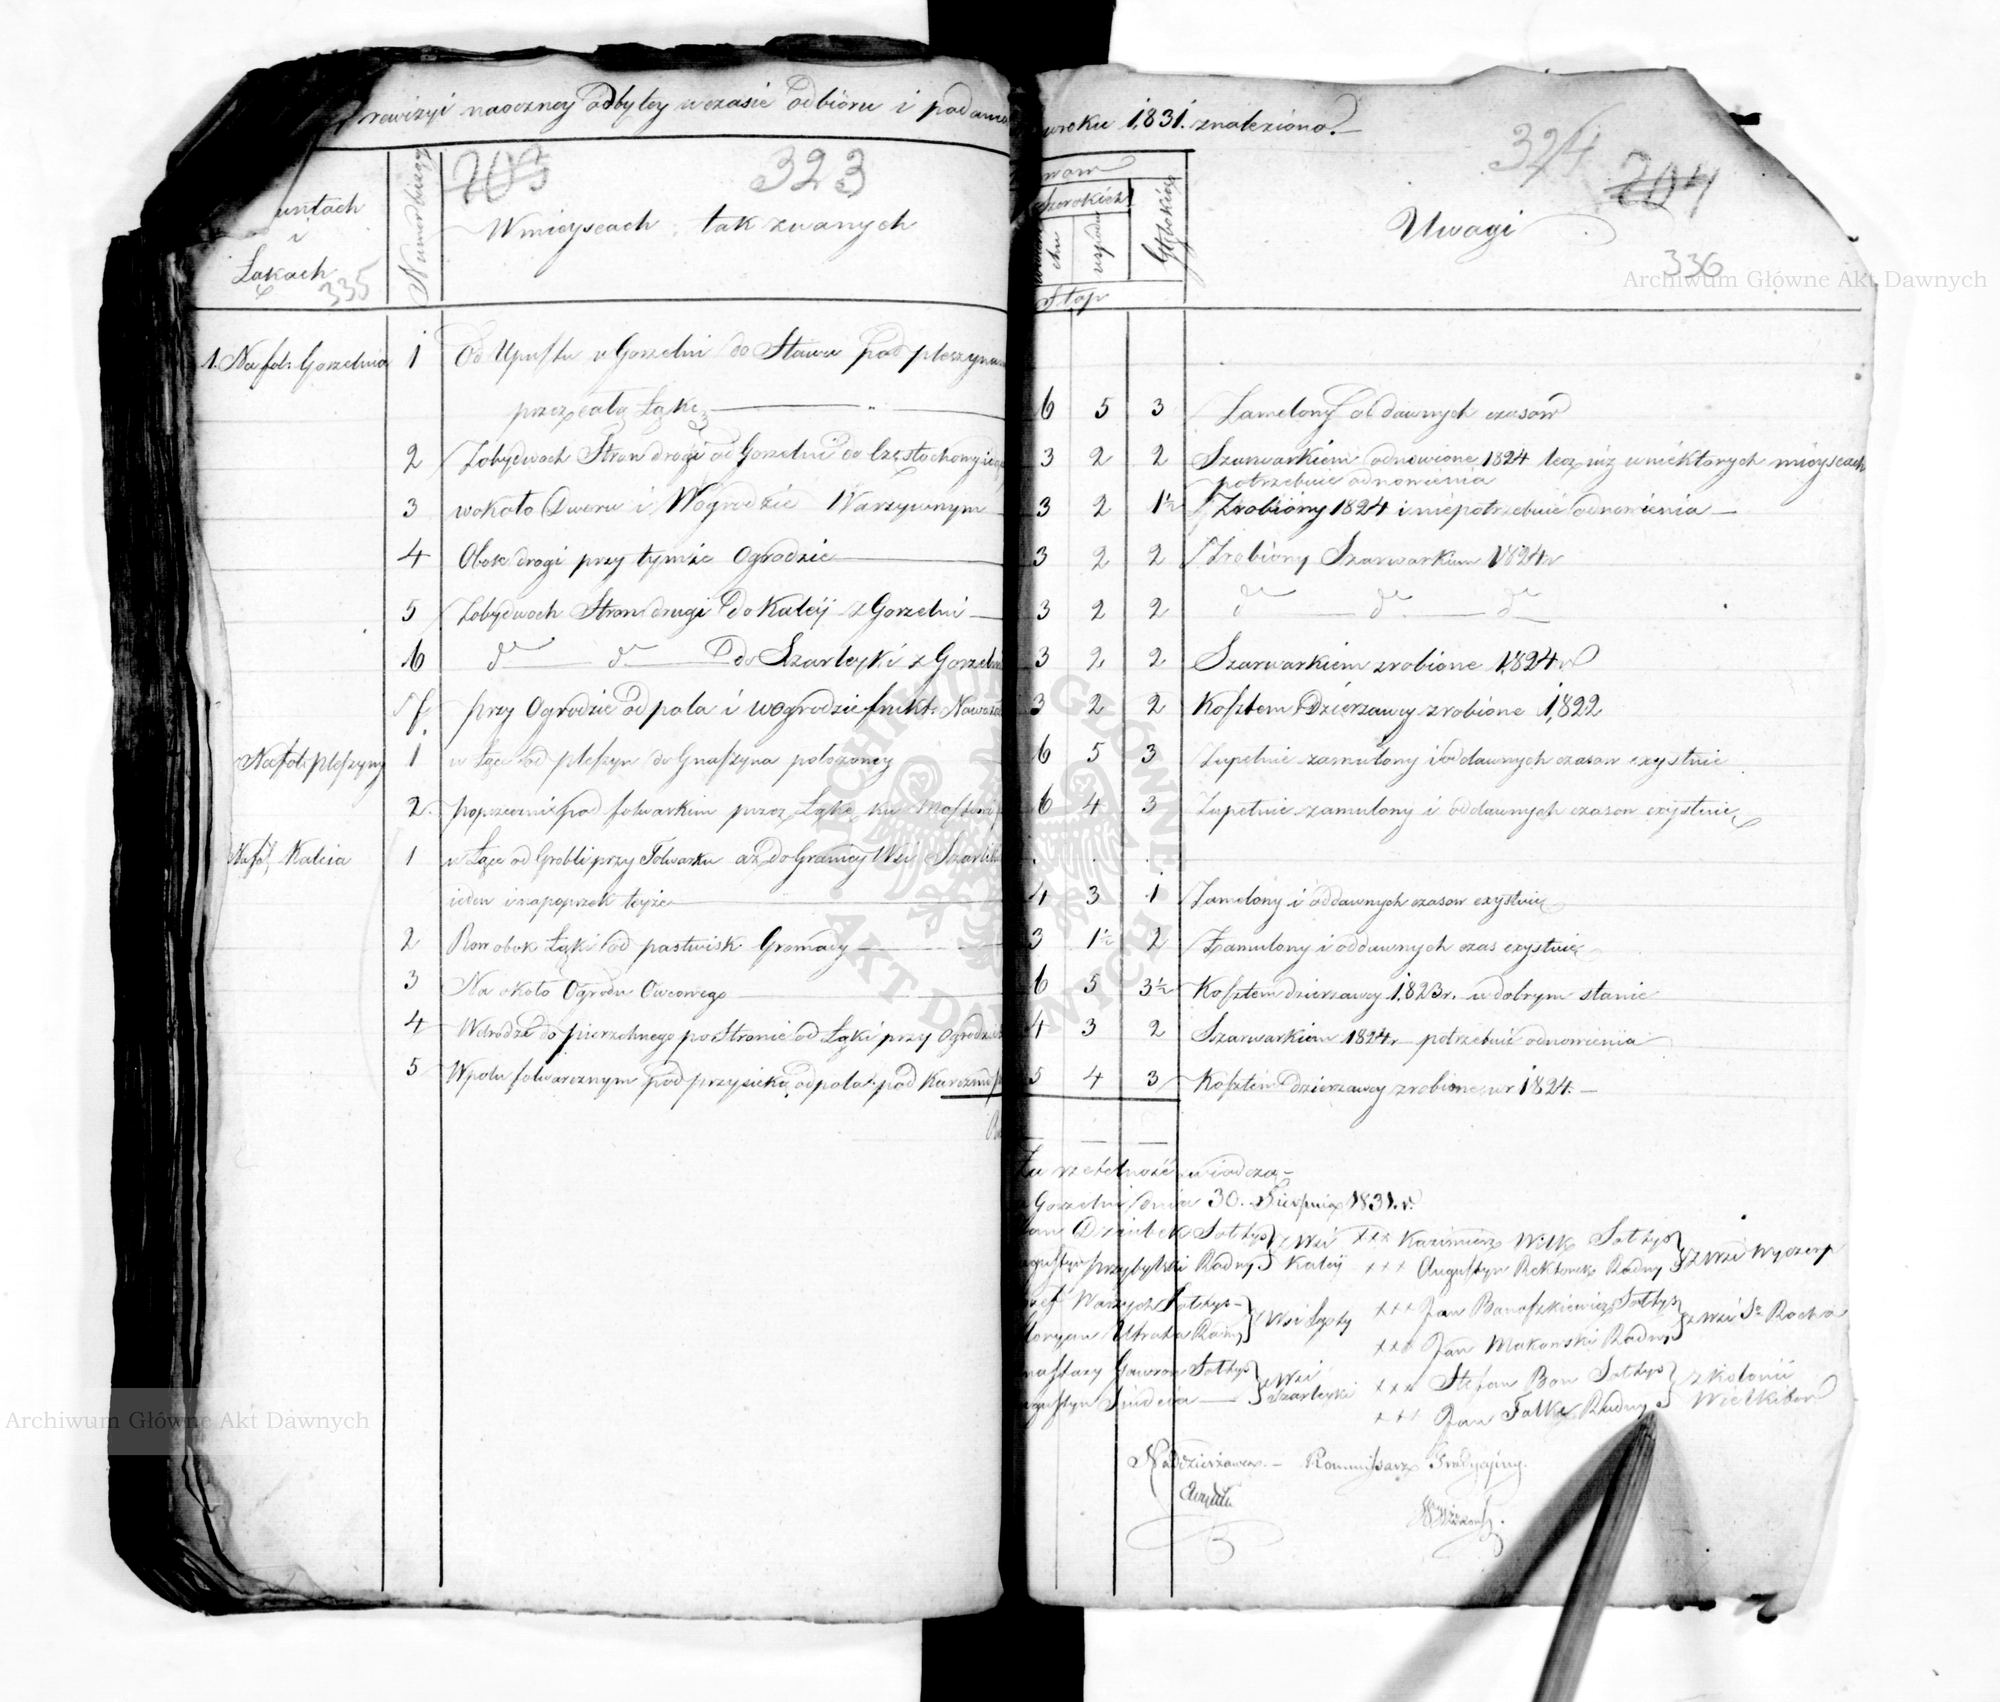 rewizyi naoczney odbytey w czasie odbioru i podania
w roku 1831. znaleziono.
703
323
324
704
335
336
untach
i
Łąkach
Numer bieżący
W mieyscach tak zwanych
rowów
szerokich
wwierzchu
uspodu
Głębokich
Stop
Uwagi
Archiwum Główne Akt Dawnych
1. Na fol: Gorzelnia 1 Od Upustu u Gorzelni do Stawu pod pleszynami
przez całą Łąkę 6 5 3 Zamelony od dawnych czasow
2 Z obydwoch Stron drogi od Gorzelni do Częstochowy idącey 3 2 2 Szarwarkiem odnowione 1824 lecz iuż w niektorych mieyscach
potrzebuie odnowienia
3 wokoło Dworu i W ogrodzie Warzywnym 3 2 1½ Zrobiony 1824 i niepotrzebuie odnowienia
4 Obok drogi przy tymże Ogrodzie 3 2 2 Zrobiony Szarwarkiem 1824 r
5 Z obydwoch Stron drogi do Kaleÿ z Gorzelni 3 2 2 do do do
6 do do do Szarleyki z Gorzelni 3 2 2 Szarwarkiem zrobione 1824 r
7 przy Ogrodzie od pola i w ogrodzie frukt: 3 2 2 Kosztem Dzierżawcy zrobione 1822
Na fol: Pleszyny 1 w Łące od pleszyn do Gnaszyna położoney 6 5 3 Zupełnie zamulony i od dawnych czasow exystuie
2. poprzecznie pod folwarkiem przez Łąkę ku 6 4 3 Zupełnie zamulony i od dawnych czasow exystuie
Na fol Kaleia 1 w Łące od Grobli przy Folwarku aż do Granicy Wsi
ieden i napoprzek teyże 4 3 1 Zamelony i od dawnych czasow exystuie
2 Row obok Łąki od pastwisk Gromady 3 1½ 2 Zamulony i od dawnych czas exystuie
3 Na około Ogrodu Owcowego 6 5 3½ Kosztem dzierżawcy 1823 r. w dobrym stanie
4 W drodze do pierzchnego po Stronie od Łąki przy Ogrodzie 4 3 2 Szarwarkiem 1824 r potrzebuie odnowienia
5 W polu folwarcznym pod przysieką od pola pod Karczmą 5 4 3 Kosztem Dzierżawcy zrobione w r 1824.
Za rzetelność swiadczą
Gorzelni dnia 30. Sierpnia 1831. r.
Jan Dziubek Sołtys z Wsi Kaleÿ xxx Kazimierz Wilk Sołtys z Wsi Wyczerp
Przybylski Radny xxx Augustyn Rektorek Radny
Warzych Sołtys Wsi xxx Jan Banaszkiewicz Sołtys z Wsi Sgo Rocha
Utrata Radny xxx Jan Makowski Radny
Gawron Sołtys z Wsi Szarleyki xxx Stefan Bon Sołtys z kolonii Wielkibor
xxx Jan Falke Radny
Naddzierżawca. Kommissarz
Archiwum Główne Akt Dawnych
ARCHIWUM GŁÓWNE AKT DAWNYCH